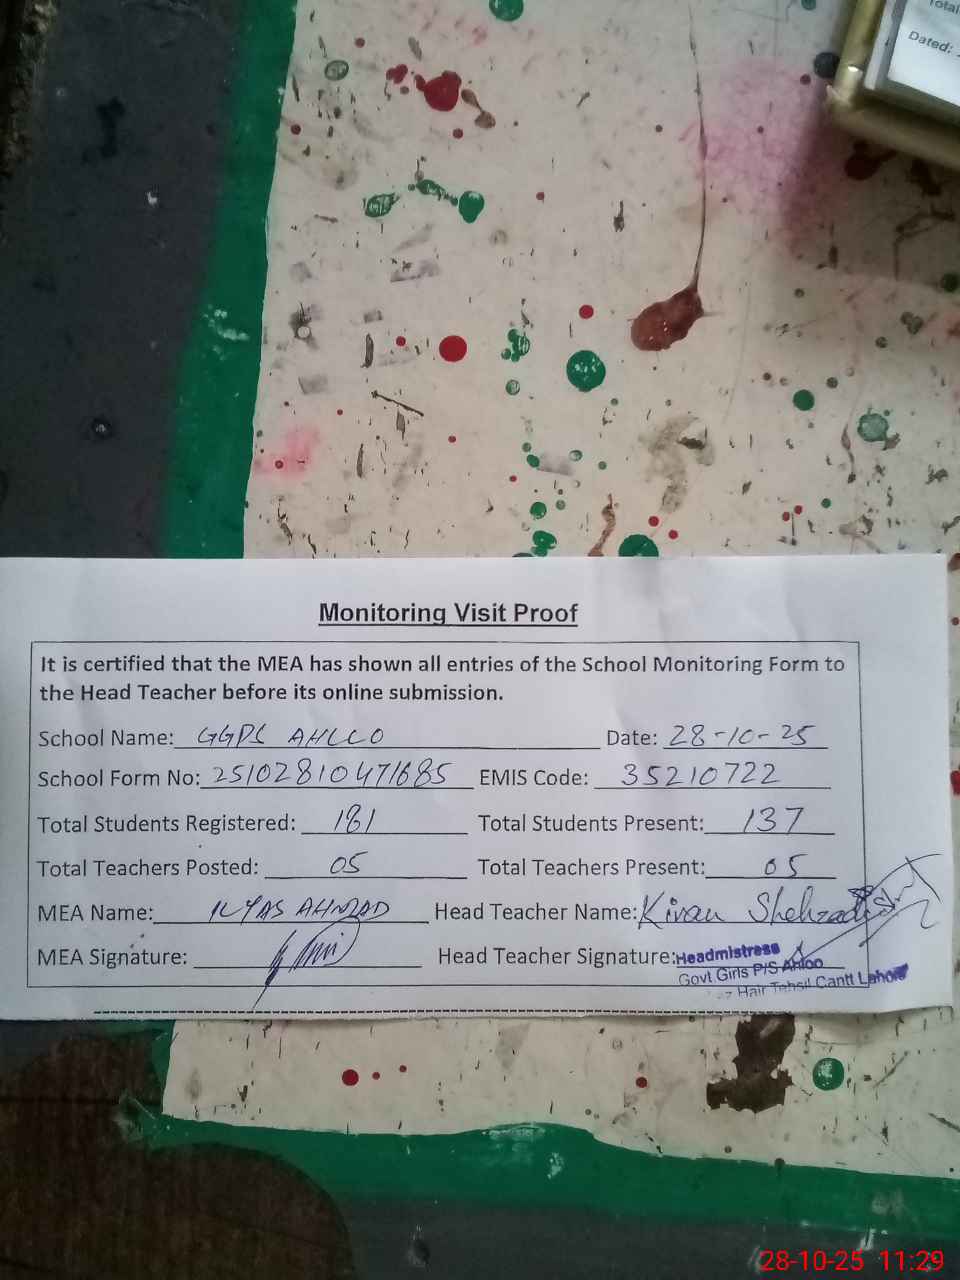 Total
Dated:
Monitoring Visit Proof
It is certified that the MEA has shown all entries of the School Monitoring Form to
the Head Teacher before its online submission.
School Name: GGPS AHLLO Date: 28-10-25
School Form No: 25102810471685 EMIS Code: 35210722
Total Students Registered: 181 Total Students Present: 137
Total Teachers Posted: 05 Total Teachers Present: 05
MEA Name: ILYAS AHMAD Head Teacher Name: Kiran Shehzadi
MEA Signature: Head Teacher Signature:
Headmistress
Govt. Girls P/S Ahloo
Hair Tehsil Cantt Lahore
28-10-25 11:29